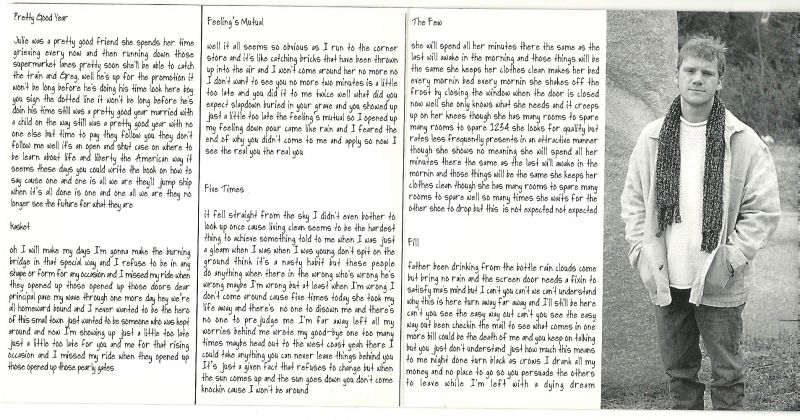 Pretty Good Year
Julie was a pretty good friend she spends her time
grieving every now and then running down those
supermarket lanes pretty soon she'll be able to catch
the train and Greg, well he's up for the promotion it
won't be long before he's doing his time look here boy
you sign the dotted line it won't be long before he's
doin his time still was a pretty good year married with
a child on the way still was a pretty good year with no
one else but time to pay they follow you they don't
follow me well it's an open and shut case on where to
be learn about life and liberty the American way it
seems these days you could write the book on how to
say cause one and one is all we are they'll jump ship
when it's all done is one and one all we are they no
longer see the future for what they are
Kasket
oh I will make my days I'm gonna make the burning
bridge in that special way and I refuse to be in any
shape or form for any occasion and I missed my ride when
they opened up those opened up those doors dear
principal pave my wave through one more day hey we're
all homeward bound and I never wanted to be the hero
of this small town just wanted to be someone who was kept
around and now I'm showing up just a little too late
just a little too late for you and me for that rising
occasion and I missed my ride when they opened up
those opened up those pearly gates
Feeling's Mutual
well it all seems so obvious as I run to the corner
store and it's like catching bricks that have been thrown
up into the air and I won't come around her no more no
I don't want to see you no more two minutes is a little
too late and you did it to me twice well what did you
expect slapdown buried in your grave and you showed up
just a little too late the feeling's mutual so I opened up
my feeling down pour came like rain and I feared the
end of why you didn't come to me and apply so now I
see the real you the real you
Five Times
it fell straight from the sky I didn't even bother to
look up once cause living clean seems to be the hardest
thing to achieve something told to me when I was just
a gleam when I was when I was young don't spit on the
ground think it's a nasty habit but these people
do anything when there in the wrong who's wrong he's
wrong maybe I'm wrong but at least when I'm wrong I
don't come around cause five times today she took my
life away and there's no one to disown me and there's
no one to pre judge me I'm far away left all my
worries behind me wrote my good-bye one too many
times maybe head out to the west coast yeah there I
could take anything you can never leave things behind you
It's just a given fact that refuses to change but when
the sun comes up and the sun goes down you don't come
knockin cause I won't be around
The Few
she will spend all her minutes there the same as the
last will awake in the morning and those things will be
the same she keeps her clothes clean makes her bed
every mornin bed every mornin she shakes off the
frost by closing the window when the door is closed
now well she only knows what she needs and it creeps
up on her knees though she has many rooms to spare
many rooms to spare 1234 she looks for quality but
rates less frequently presents in an attractive manner
though she shows no meaning she will spend all her
minutes there the same as the last will awake in the
mornin and those things will be the same she keeps her
clothes clean though she has many rooms to spare many
rooms to spare well so many times she waits for the
other shoe to drop but this is not expected not expected
Fill
father been drinking from the bottle rain clouds come
but bring no rain and the screen door needs a fixin to
satisfy ma's mind but I can't you can't we can't understand
why this is here turn away far away and I'll still be here
can't you see the easy way out can't you see the easy
way out been checkin the mail to see what comes in one
more bill could be the death of me and you keep on talking
but you just don't understand just how much this means
to me night done turn black as crows I drank all my
money and no place to go so you persuade the others
to leave while I'm left with a dying dream